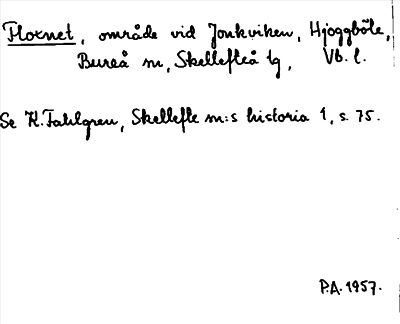 Floxnet, område vid Jonkviken, Hjoggböle,
Bureå m, Skellefteå tg, Vb. l.
Se K. Fahlgren, Skellefte m:s historia 1, s. 75.
P.A. 1957.